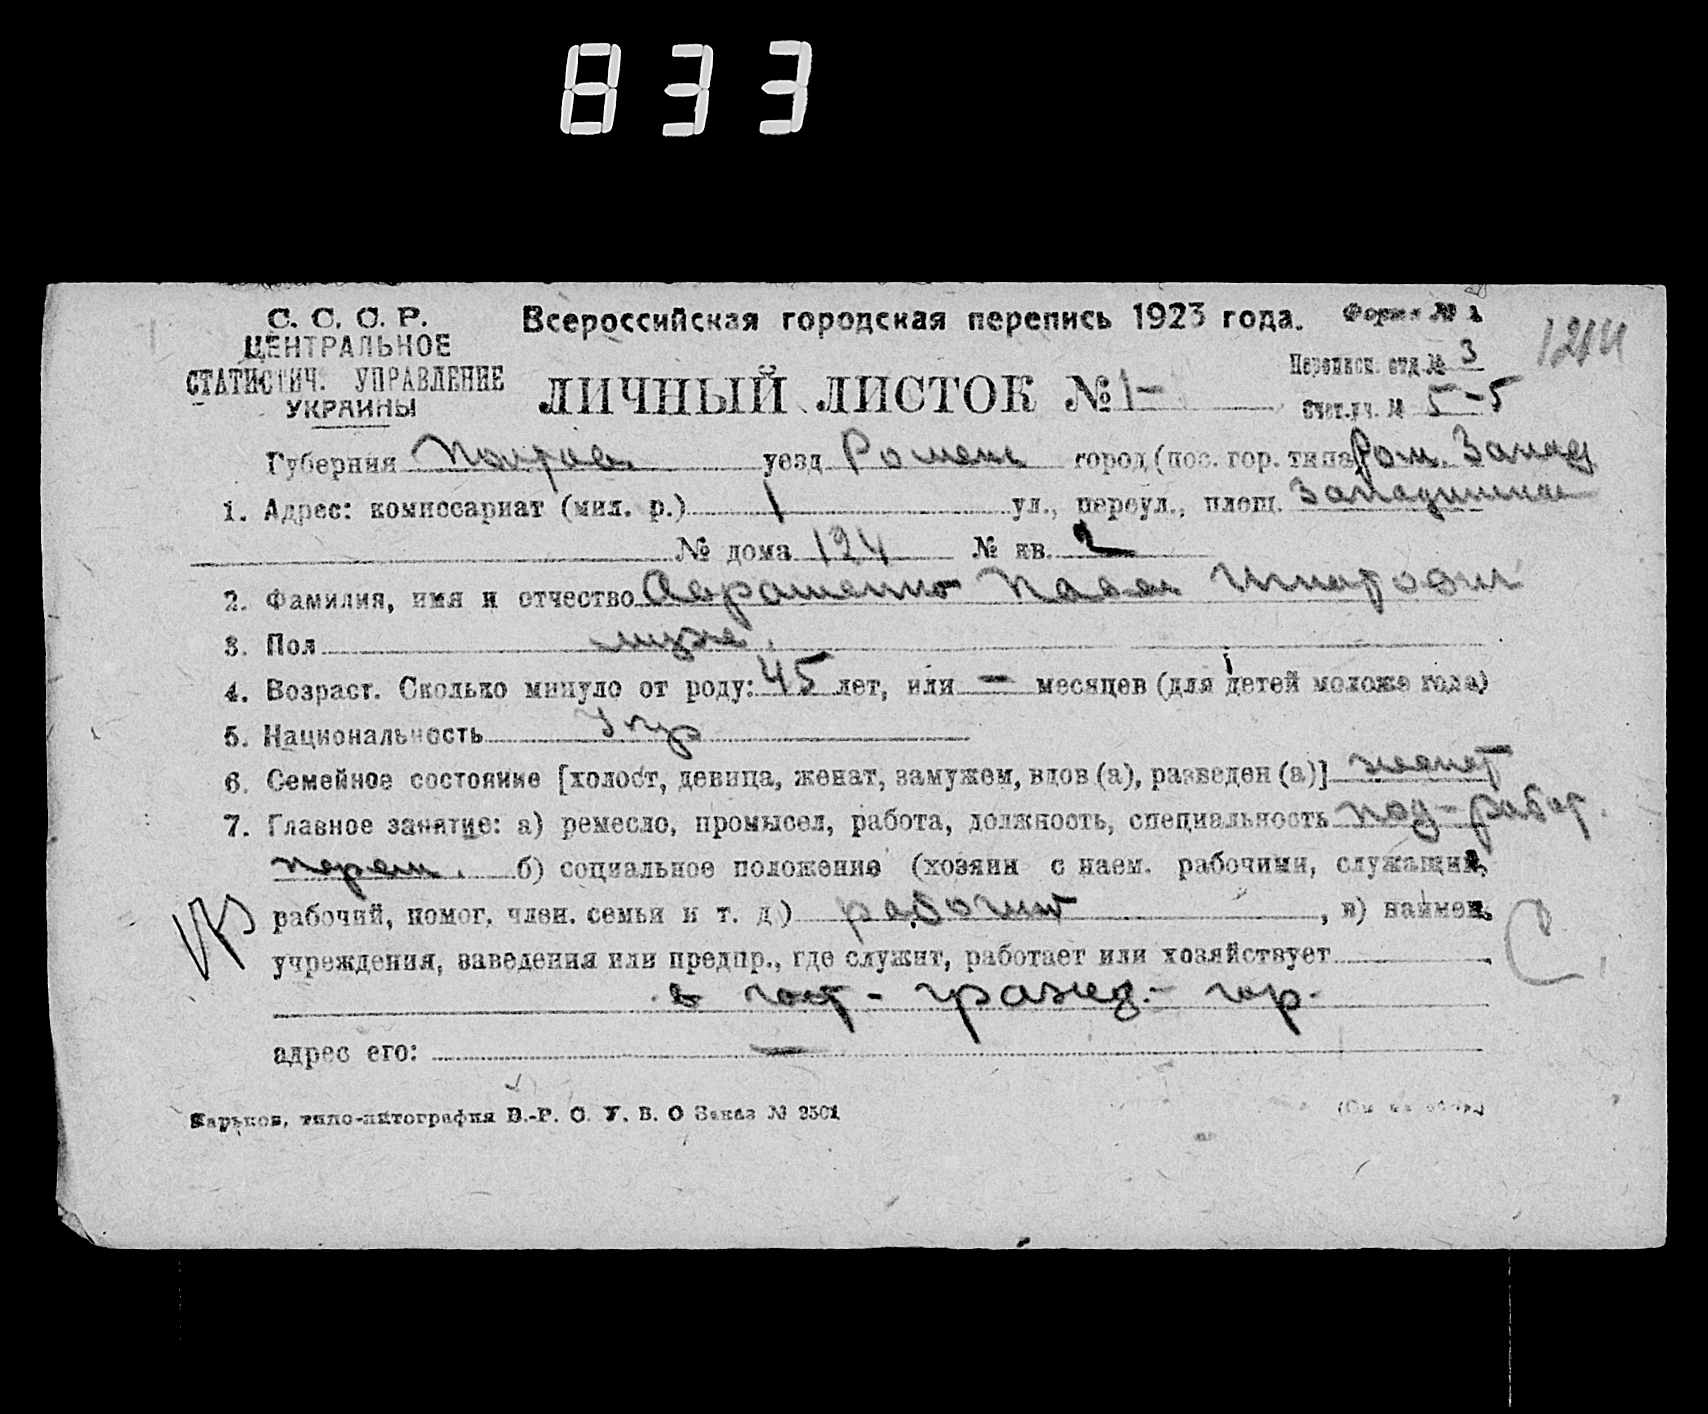 833
С. С. С. Р.
ЦЕНТРАЛЬНОЕ
СТАТИСТИЧ. УПРАВЛЕНИЕ
УКРАИНЫ
Всероссийская городская перепись 1923 года.
Форма № 1
1214
ЛИЧНЫЙ ЛИСТОК № 1-
Переписн. отд. № 3
Счет. уч. № 5-5
Губерния Полтав. уезд Ромен город (пос. гор. типа) Ром. Запад
1. Адрес: комиссариат (мил. р.) 1 ул., переул., площ.
№ дома 124 № кв. 2
2. Фамилия, имя и отчество Аврашенко Павел
3. Пол муж.
4. Возраст. Сколько минуло от роду: 45 лет, или — месяцев (для детей моложе года)
5. Национальность Укр
6. Семейное состояние [холост, девица, женат, замужем, вдов (а), разведен (а)] женат
7. Главное занятие: а) ремесло, промысел, работа, должность, специальность
б) социальное положение (хозяин с наем. рабочими, служащий,
рабочий, помог. член. семьи и т. д.) рабочий, в) наимен.
учреждения, заведения или предпр., где служит, работает или хозяйствует
в
адрес его: —
Харьков, типо-литография В.-Р. С. У. В. О Заказ № 2501